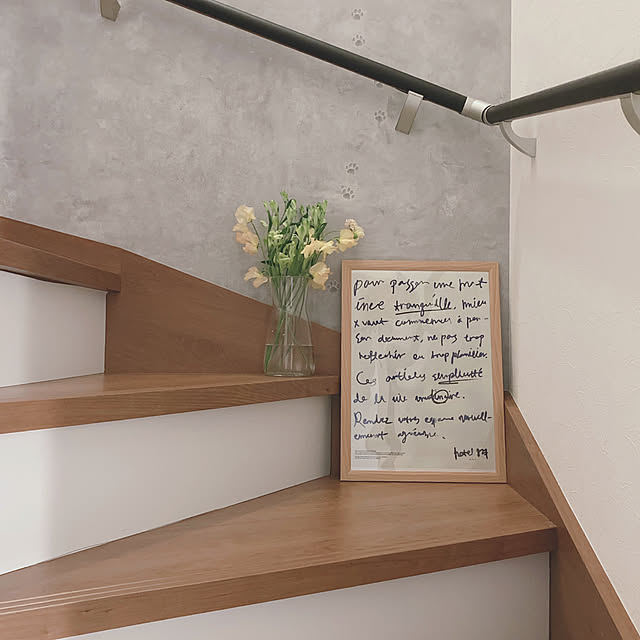 pour passer une mat
inée tranquille, mieu
x vaut commencer à pen-
ser doucement, ne pas trop
réfléchir ou trop planifier.
Ces articles simplicité
de la vie
Rendez votre espace naturell-
ement agréable.
hotel